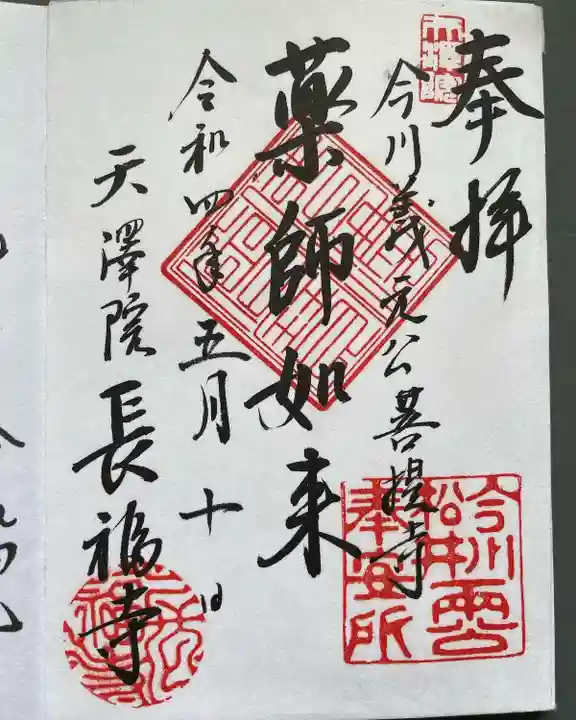 奉拝
今川義元公菩提寺
薬師如来
令和四年五月十日
天澤院長福寺
今川
松井両公
奉祀所